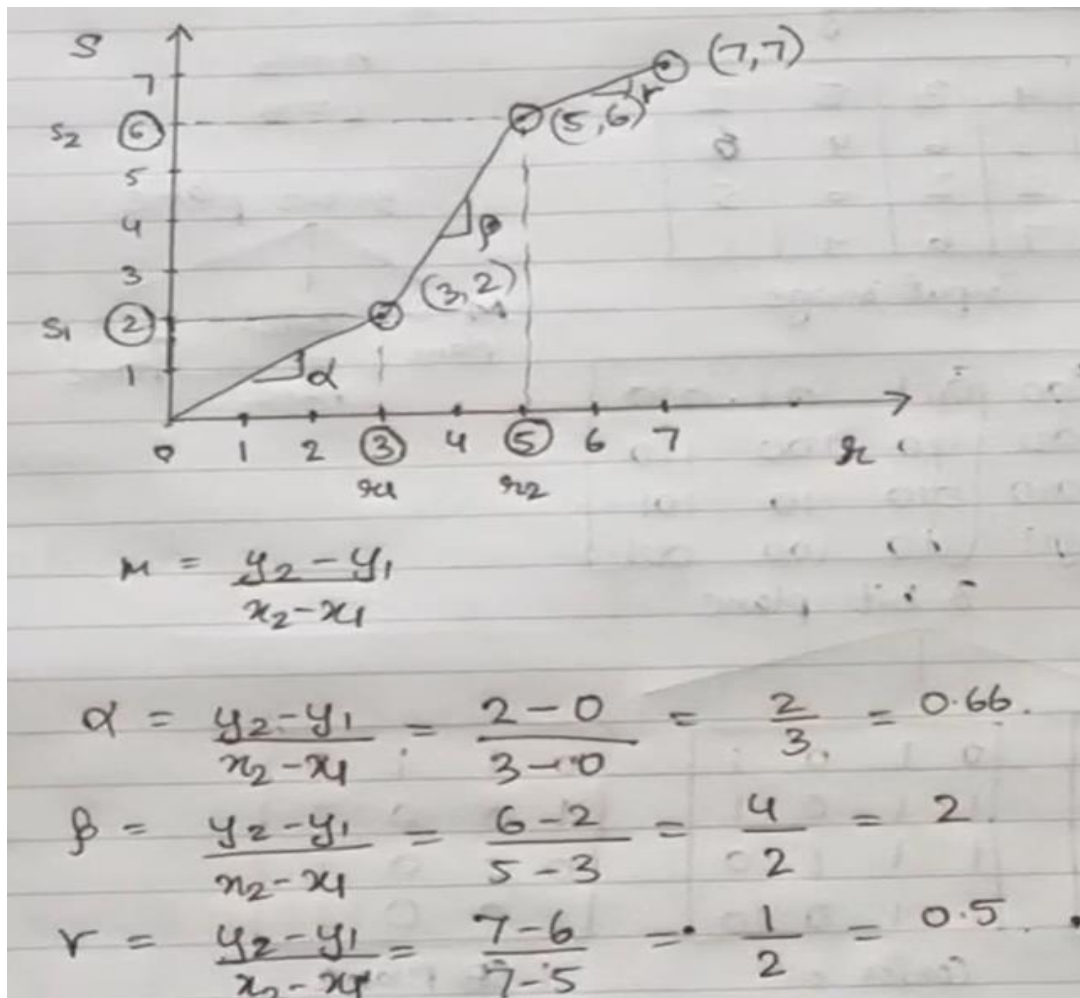 S
7 (7,7)
S2 6 (5,6) γ
5
4 β
3 (3,2)
S1 2
1 α
0 1 2 3 4 5 6 7 r
r1 r2
m = y2-y1 / x2-x1
α = y2-y1 / x2-x1 = 2-0 / 3-0 = 2/3 = 0.66.
β = y2-y1 / x2-x1 = 6-2 / 5-3 = 4/2 = 2
γ = y2-y1 / x2-x1 = 7-6 / 7-5 = 1/2 = 0.5